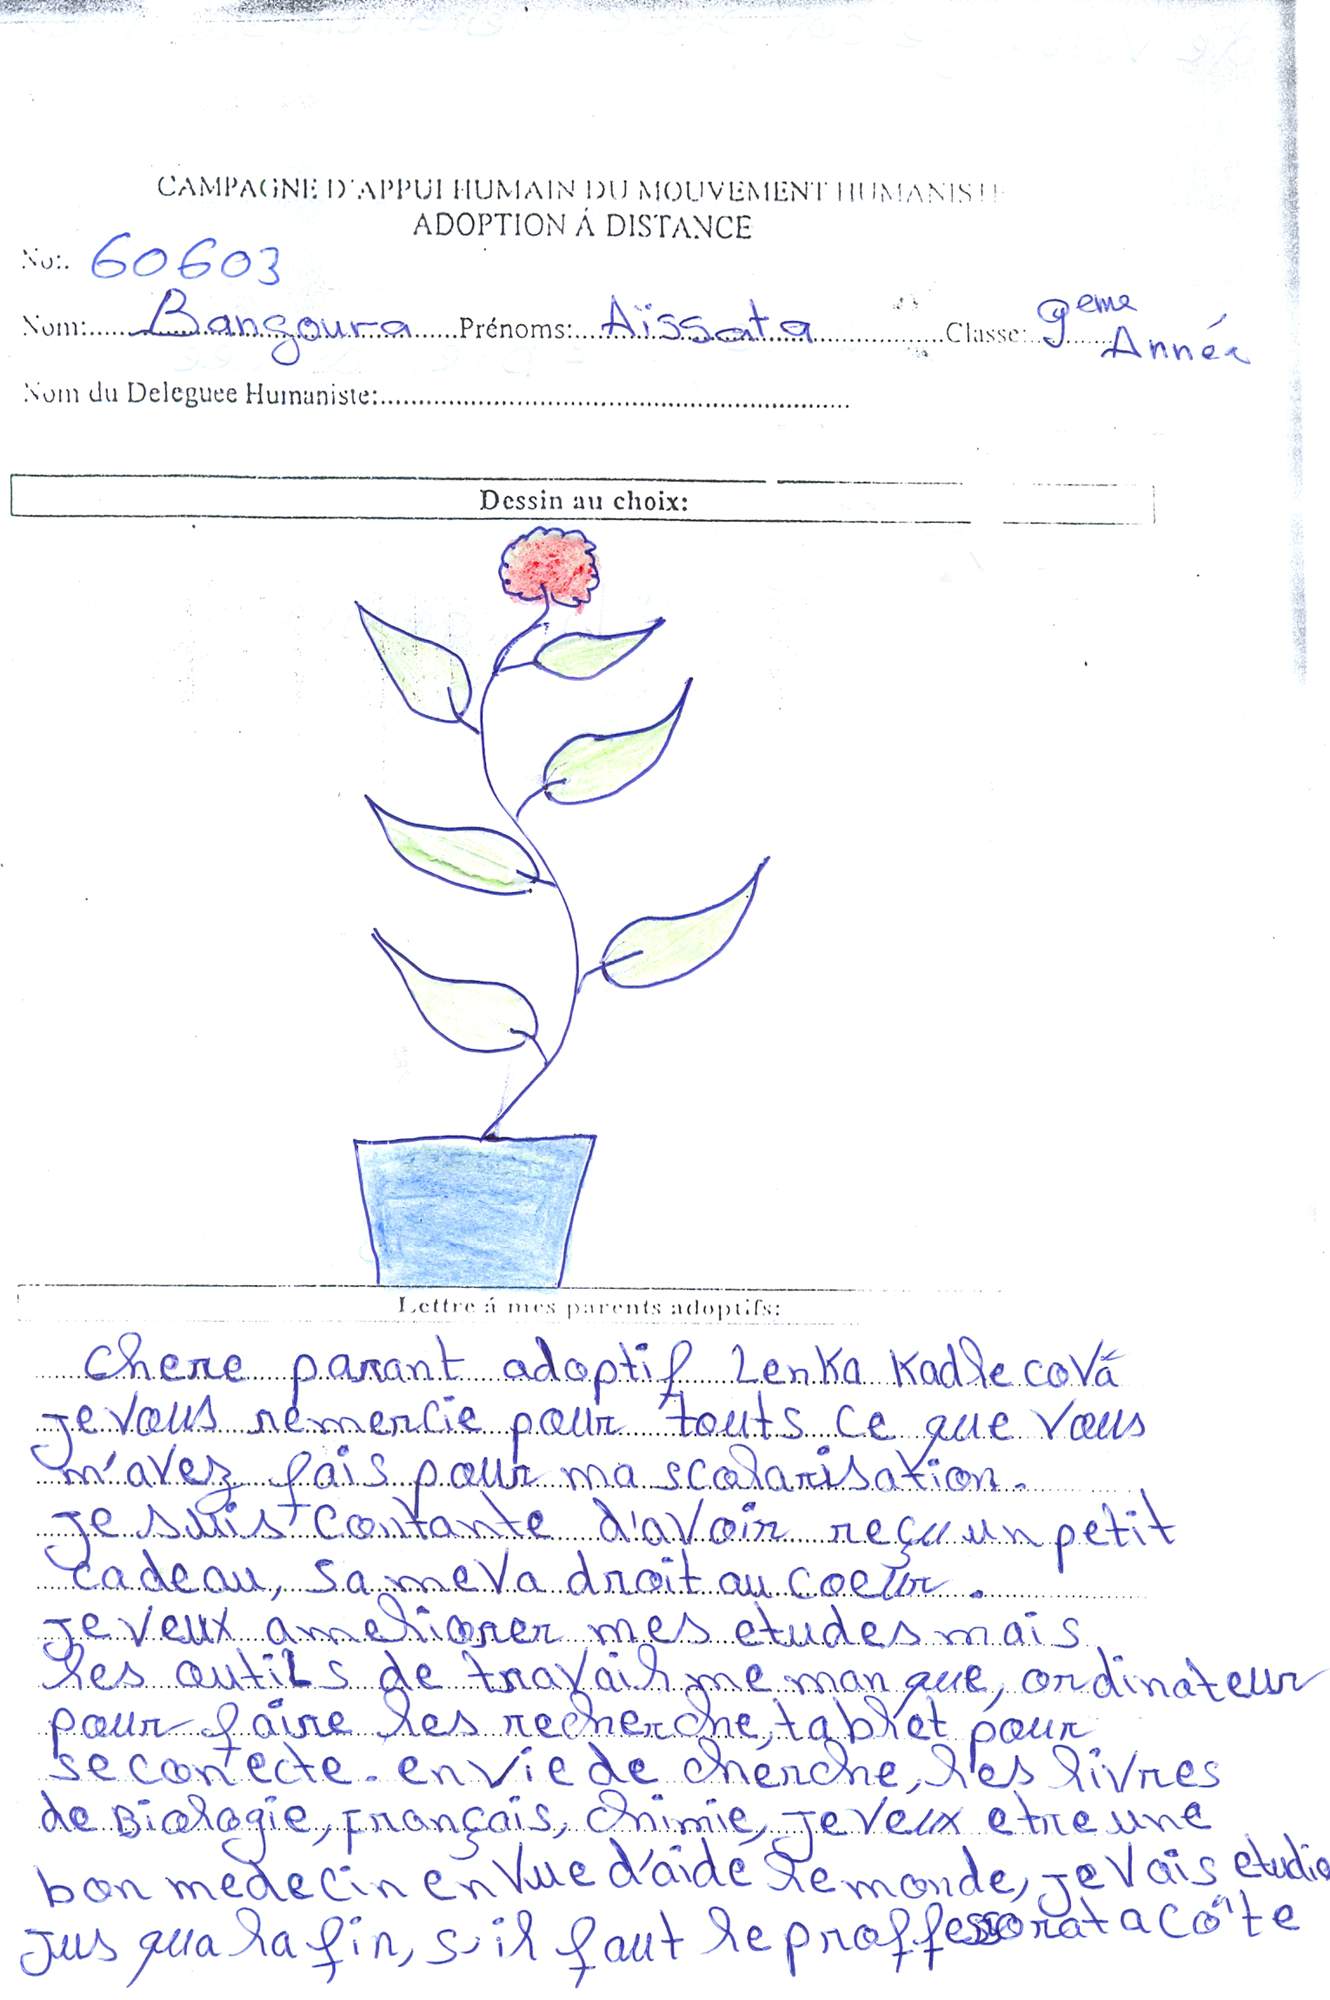 CAMPAGNE D'APPUI HUMAIN DU MOUVEMENT HUMANISTE
ADOPTION Á DISTANCE
No:. 60603
Nom: Bangoura Prénoms: Aïssata Classe: 9eme Année
Nom du Deleguee Humaniste:
Dessin au choix:
Lettre á mes parents adoptifs:
chere parant adoptif Lenka Kadlecová
je vous remercie pour touts ce que vous
m'avez fais pour ma scolarisation.
je suis contante d'avoir reçu un petit
cadeau, sa me va droit au coeur.
je veux ameliorer mes etudes mais
les outils de travail me manque, ordinateur
pour faire les recherche, tablet pour
se conecte. en vie de cherche, les livres
de Biologie, français, chimie, je veux etre une
bon medecin en vue d'aidé le monde, je vais etudie
jus qua la fin, s'il faut le proffessorat a côte